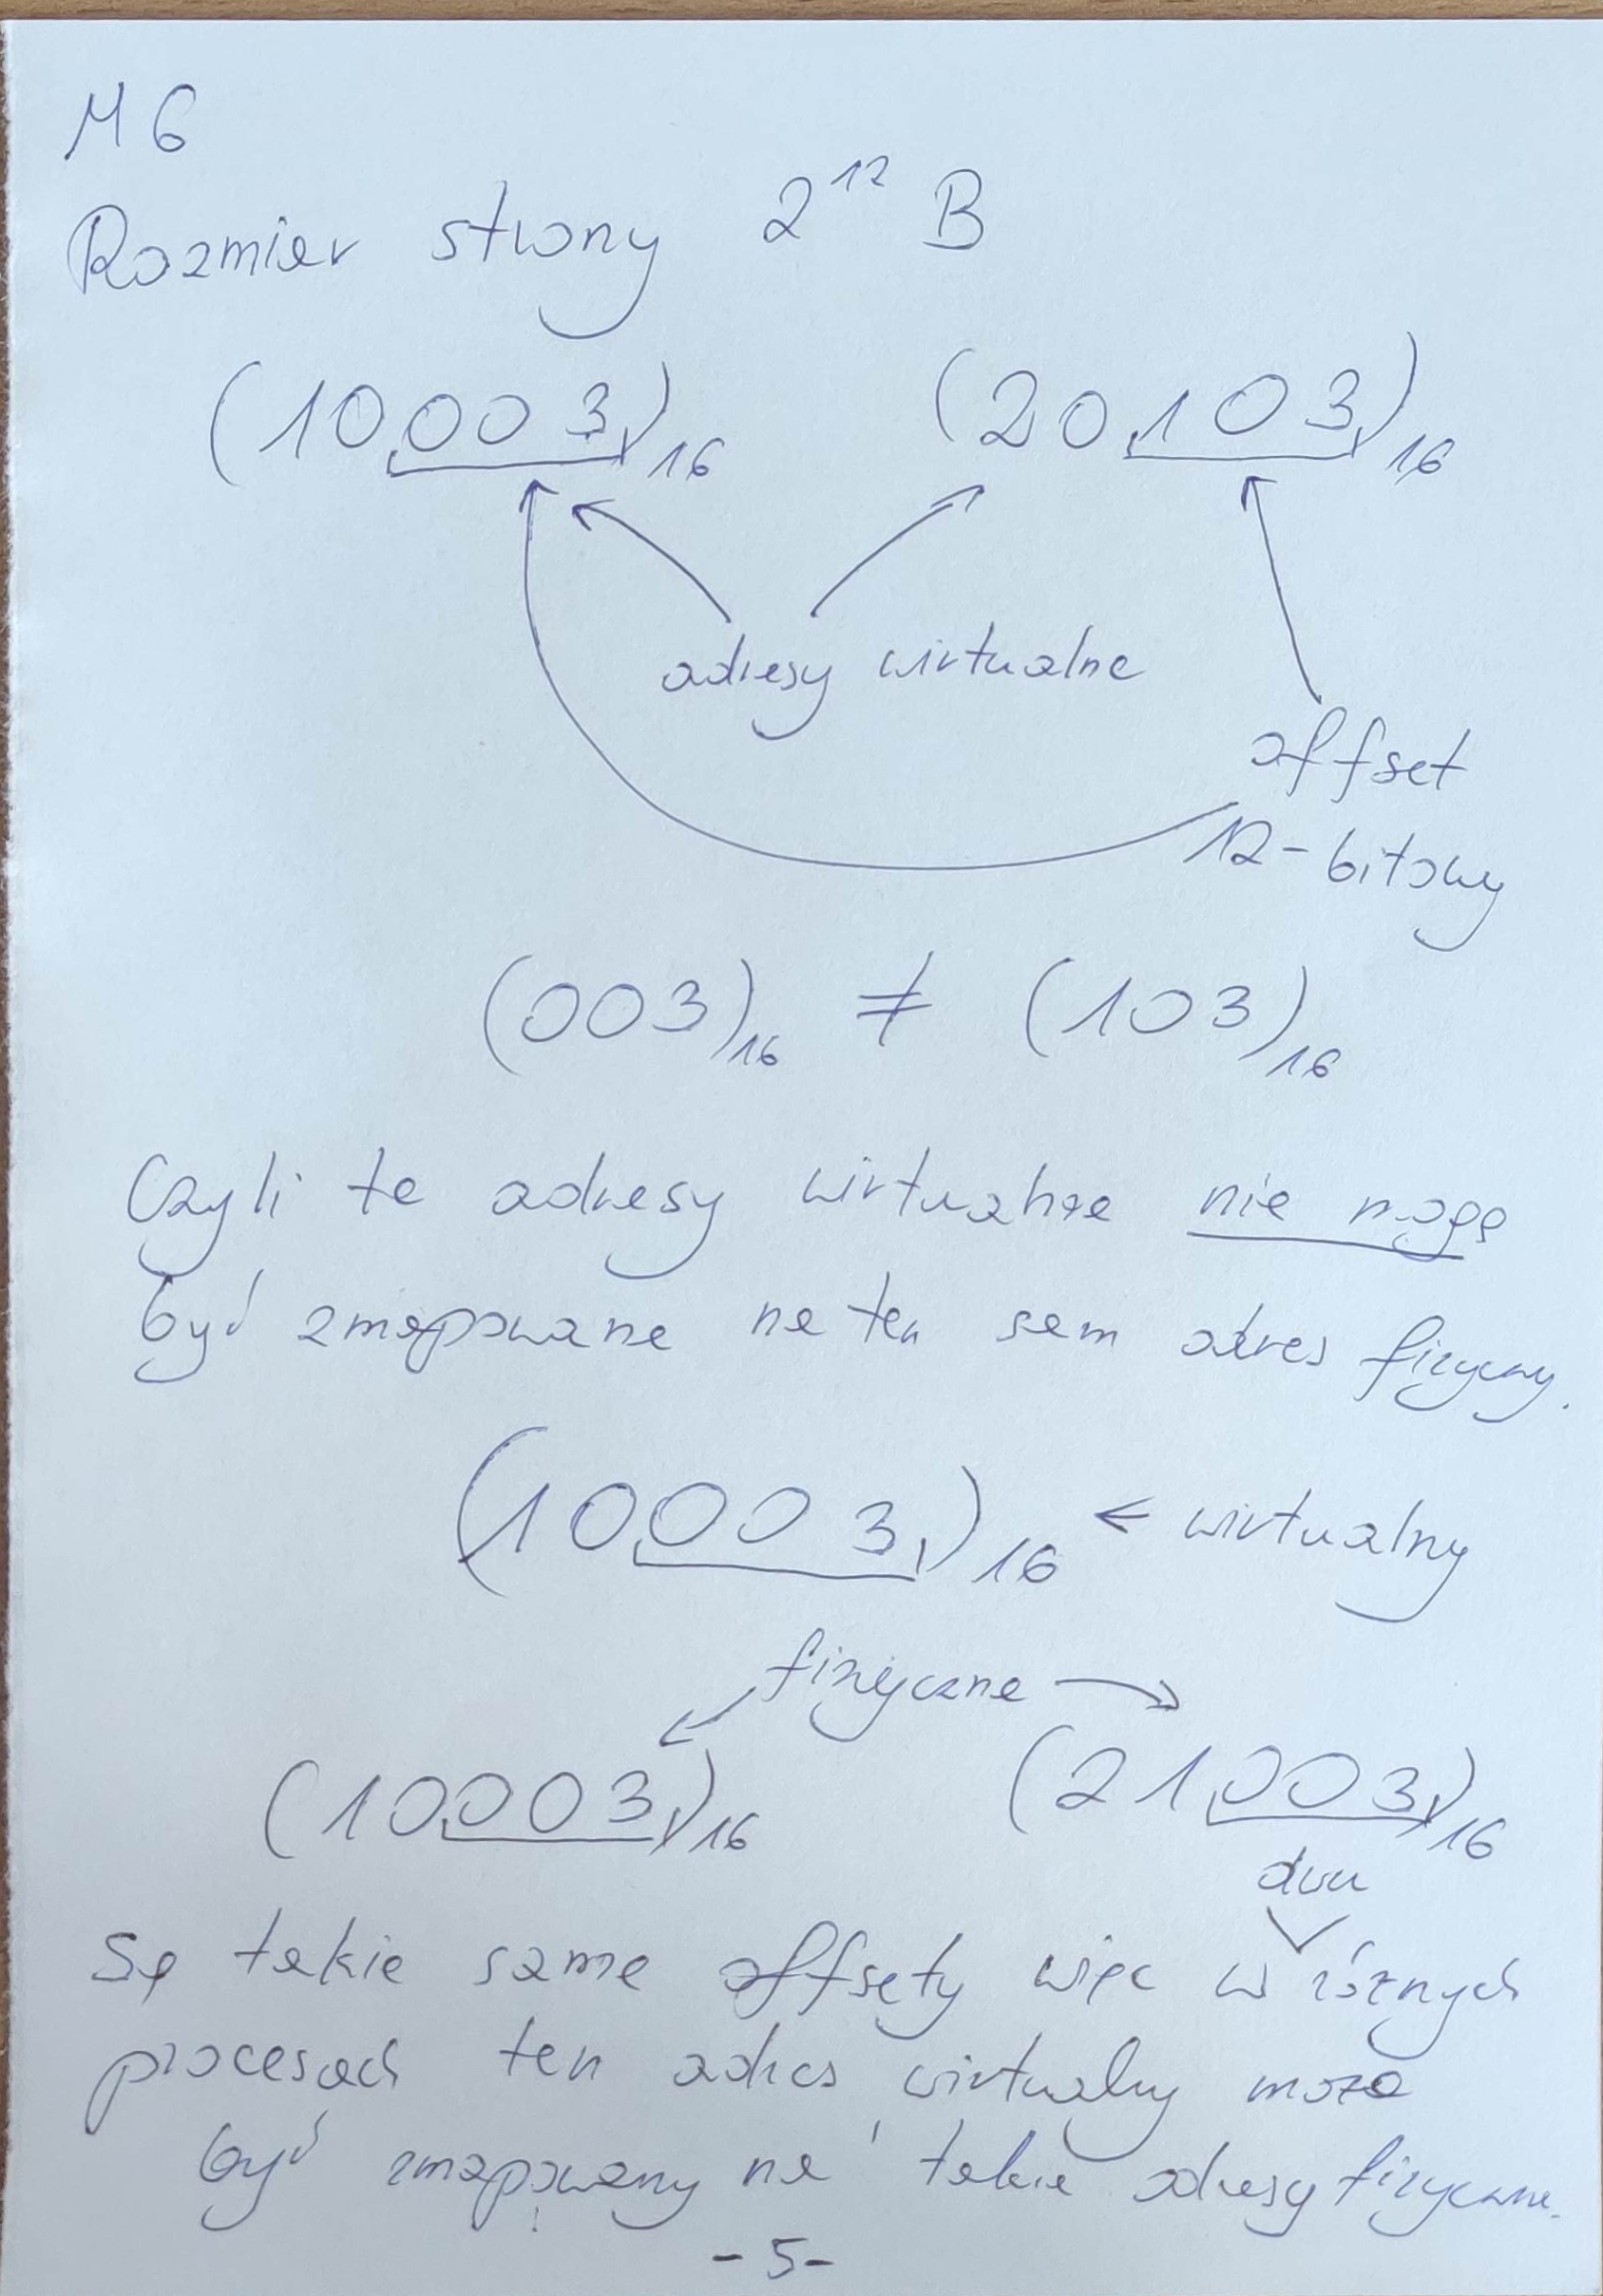 M6
Rozmiar strony 2¹² B
(10003)₁₆ (20103)₁₆
adresy wirtualne
offset
12-bitowy
(003)₁₆ ≠ (103)₁₆
Czyli te adresy wirtualne nie mogą
być zmapowane na ten sam adres fizyczny.
(10003)₁₆ ← wirtualny
fizyczne
(10003)₁₆ (21003)₁₆
dwu
Są takie same offsety więc w różnych
procesach ten adres wirtualny może
być zmapowany na takie adresy fizyczne.
-5-